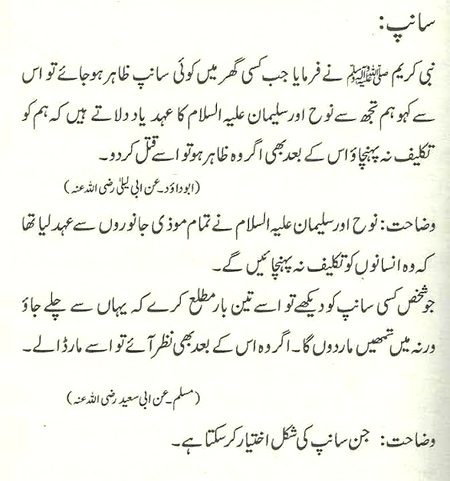 سانپ:
نبی کریم ﷺ نے فرمایا جب کسی گھر میں کوئی سانپ ظاہر ہو جائے تو اس
سے کہو ہم تجھ سے نوح اور سلیمان علیہ السلام کا عہد یاد دلاتے ہیں کہ ہم کو
تکلیف نہ پہنچاؤ اس کے بعد بھی اگر وہ ظاہر ہو تو اسے قتل کر دو۔
(ابوداؤد۔عن ابی لیلیٰ رضی اللہ عنہ)
وضاحت: نوح اور سلیمان علیہ السلام نے تمام موذی جانوروں سے عہد لیا تھا
کہ وہ انسانوں کو تکلیف نہ پہنچائیں گے۔
جو شخص کسی سانپ کو دیکھے تو اسے تین بار مطلع کرے کہ یہاں سے چلے جاؤ
ورنہ میں تمھیں مار دوں گا۔ اگر وہ اس کے بعد بھی نظر آئے تو اسے مار ڈالے۔
(مسلم۔عن ابی سعید رضی اللہ عنہ)
وضاحت: جن سانپ کی شکل اختیار کر سکتا ہے۔